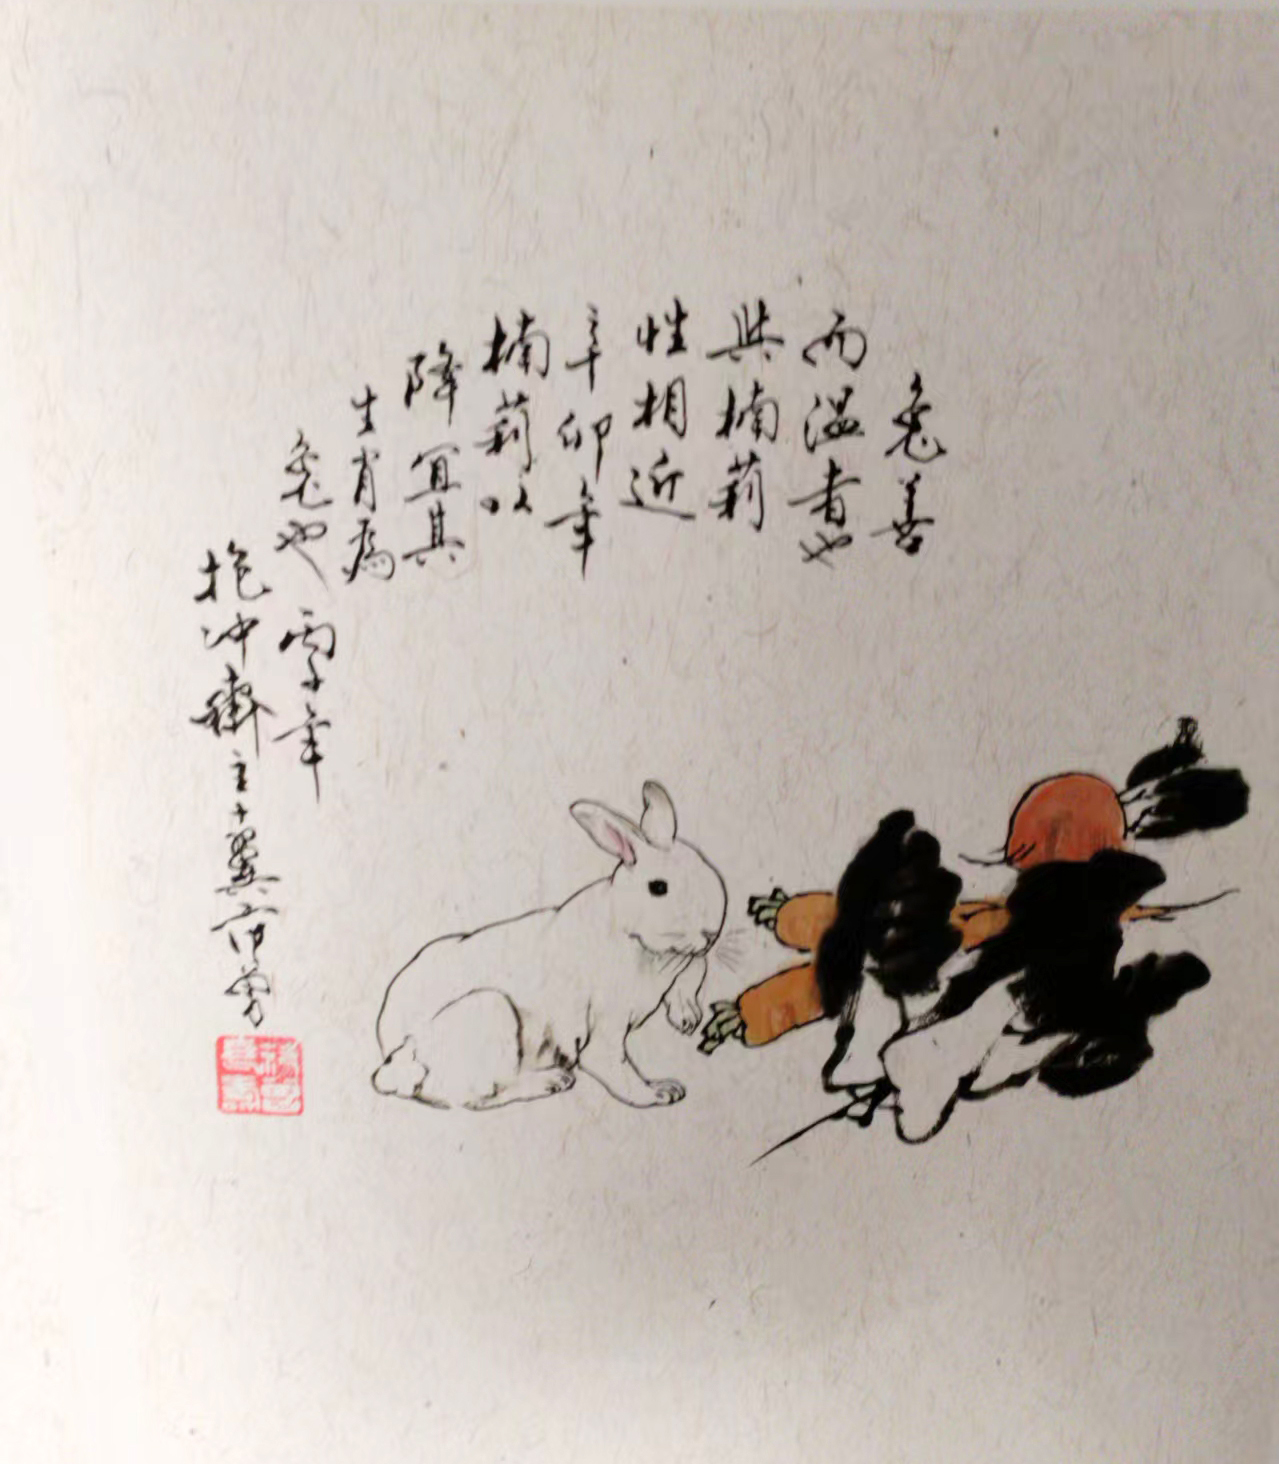 兔善
而温者也
與楠莉
性相近
辛卯年
楠莉以
降宜其
生肖為
兔也 丙子年
抱冲齋主十翼范曾